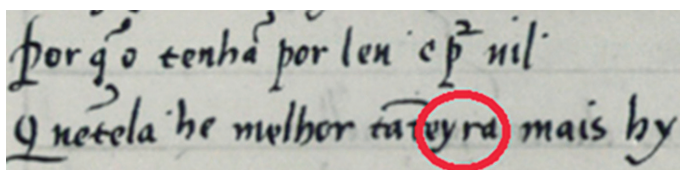 por q̃o tenhã por len · e p̃² uil·
Q netẽla · he melhor tãteyra mais hy